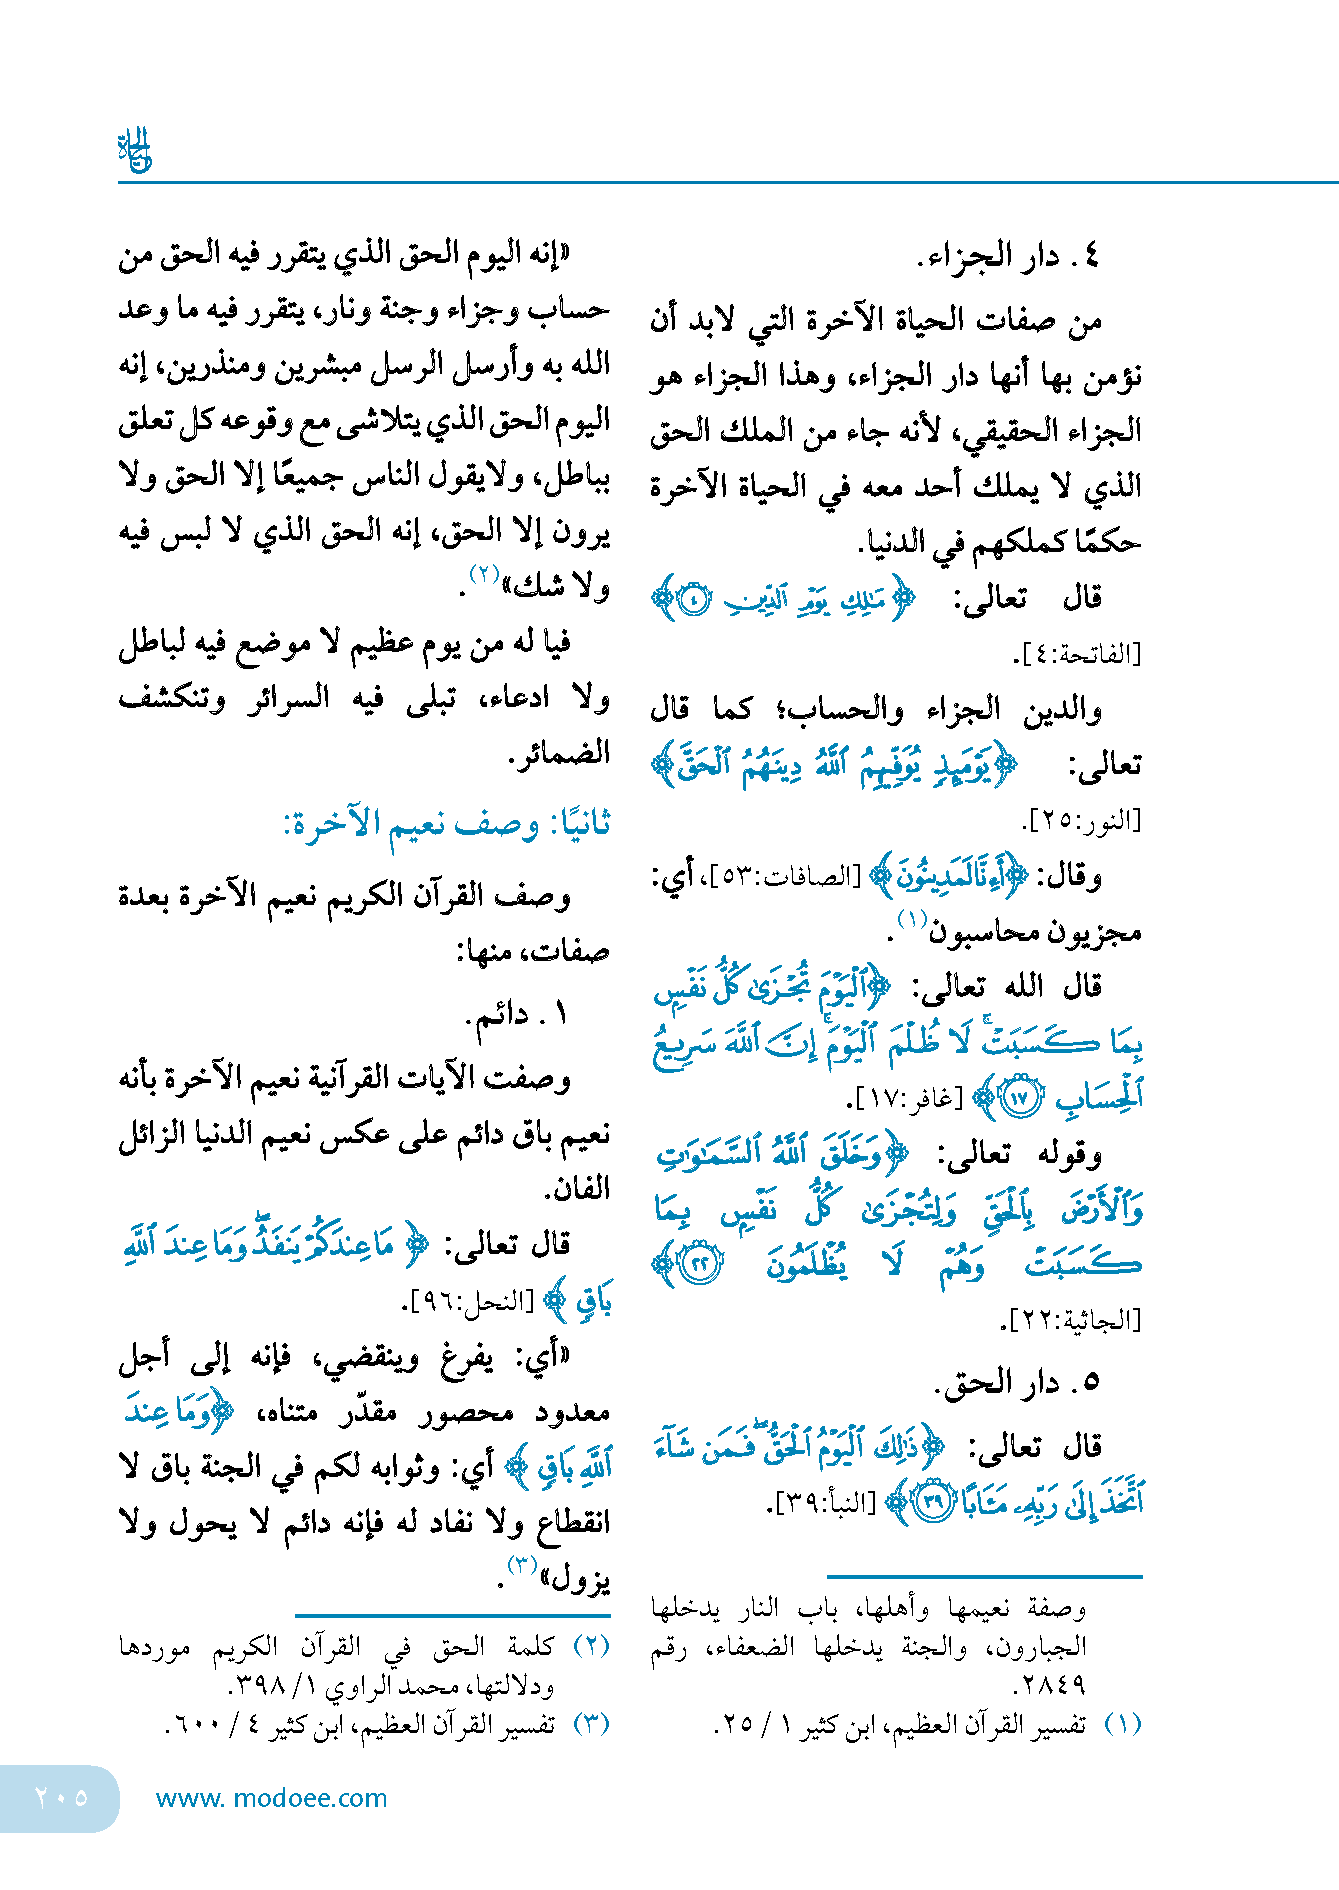 الحياة
٤. دار الجزاء.
من صفات الحياة الآخرة التي لابد أن
نؤمن بها أنها دار الجزاء، وهذا الجزاء هو
الجزاء الحقيقي، لأنه جاء من الملك الحق
الذي لا يملك أحد معه في الحياة الآخرة
حكمًا كملكهم في الدنيا.
قال تعالى: ﴿مَٰلِكِ يَوۡمِ ٱلدِّينِ ٤﴾
[الفاتحة:٤].
والدين الجزاء والحساب؛ كما قال
تعالى: ﴿يَوۡمَئِذٖ يُوَفِّيهِمُ ٱللَّهُ دِينَهُمُ ٱلۡحَقَّ﴾
[النور:٢٥].
وقال: ﴿أَءِنَّا لَمَدِينُونَ﴾ [الصافات:٥٣]، أي:
مجزيون محاسبون(١).
قال الله تعالى: ﴿ٱلۡيَوۡمَ تُجۡزَىٰ كُلُّ نَفۡسِۭ
بِمَا كَسَبَتۡۚ لَا ظُلۡمَ ٱلۡيَوۡمَۚ إِنَّ ٱللَّهَ سَرِيعُ
ٱلۡحِسَابِ ١٧﴾ [غافر:١٧].
وقوله تعالى: ﴿وَخَلَقَ ٱللَّهُ ٱلسَّمَٰوَٰتِ
وَٱلۡأَرۡضَ بِٱلۡحَقِّ وَلِتُجۡزَىٰ كُلُّ نَفۡسِۭ بِمَا
كَسَبَتۡ وَهُمۡ لَا يُظۡلَمُونَ ٢٢﴾
[الجاثية:٢٢].
٥. دار الحق.
قال تعالى: ﴿ذَٰلِكَ ٱلۡيَوۡمُ ٱلۡحَقُّۖ فَمَن شَآءَ
ٱتَّخَذَ إِلَىٰ رَبِّهِۦ مَـَٔابًا ٣٩﴾ [النبأ:٣٩].
وصفة نعيمها وأهلها، باب النار يدخلها
الجبارون، والجنة يدخلها الضعفاء، رقم
٢٨٤٩.
(١) تفسير القرآن العظيم، ابن كثير ١ / ٢٥.
«إنه اليوم الحق الذي يتقرر فيه الحق من
حساب وجزاء وجنة ونار، يتقرر فيه ما وعد
الله به وأرسل الرسل مبشرين ومنذرين، إنه
اليوم الحق الذي يتلاشى مع وقوعه كل تعلق
بباطل، ولايقول الناس جميعًا إلا الحق ولا
يرون إلا الحق، إنه الحق الذي لا لبس فيه
ولا شك»(٢).
فيا له من يوم عظيم لا موضع فيه لباطل
ولا ادعاء، تبلى فيه السرائر وتنكشف
الضمائر.
ثانيًا: وصف نعيم الآخرة:
وصف القرآن الكريم نعيم الآخرة بعدة
صفات، منها:
١. دائم.
وصفت الآيات القرآنية نعيم الآخرة بأنه
نعيم باق دائم على عكس نعيم الدنيا الزائل
الفان.
قال تعالى: ﴿مَا عِندَكُمۡ يَنفَدُۖ وَمَا عِندَ ٱللَّهِ
بَاقٖ﴾ [النحل:٩٦].
«أي: يفرغ وينقضي، فإنه إلى أجل
معدود محصور مقدّر متناه، ﴿وَمَا عِندَ
ٱللَّهِ بَاقٖ﴾ أي: وثوابه لكم في الجنة باق لا
انقطاع ولا نفاد له فإنه دائم لا يحول ولا
يزول»(٣).
(٢) كلمة الحق في القرآن الكريم موردها
ودلالتها، محمد الراوي ١/ ٣٩٨.
(٣) تفسير القرآن العظيم، ابن كثير ٤ / ٦٠٠.
www. modoee.com
٢٠٥